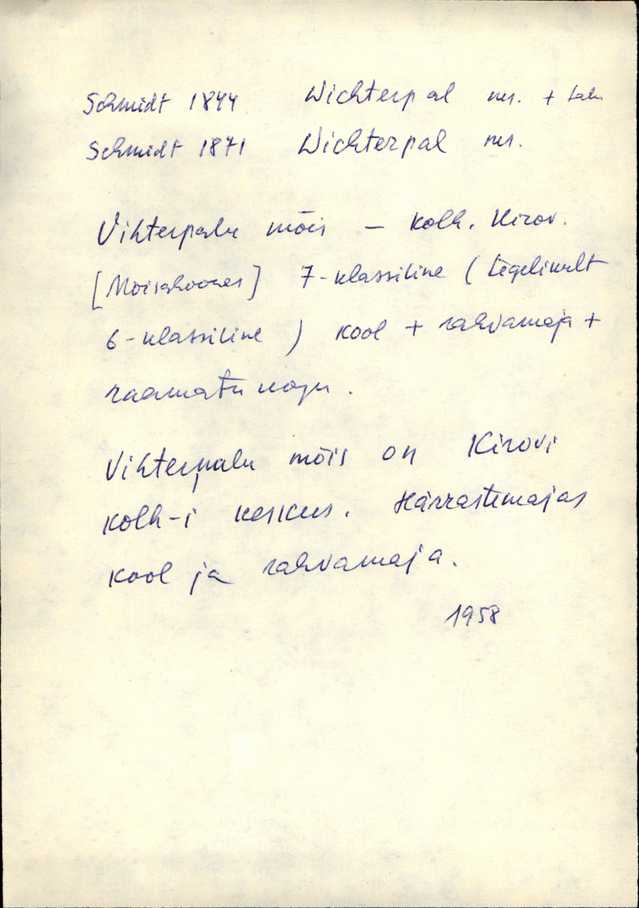 Schmidt 1844 Wichterpal ms. +
Schmidt 1871 Wichterpal ms.
Vihterpalu mõis – kolh. Kirov.
[Mõisahoones] 7-klassiline (tegelikult
6-klassiline) kool + rahvamaja +
raamatukogu.
Vihterpalu mõis on Kirovi
kolh-i keskus. Härrastemajas
kool ja rahvamaja.
1958